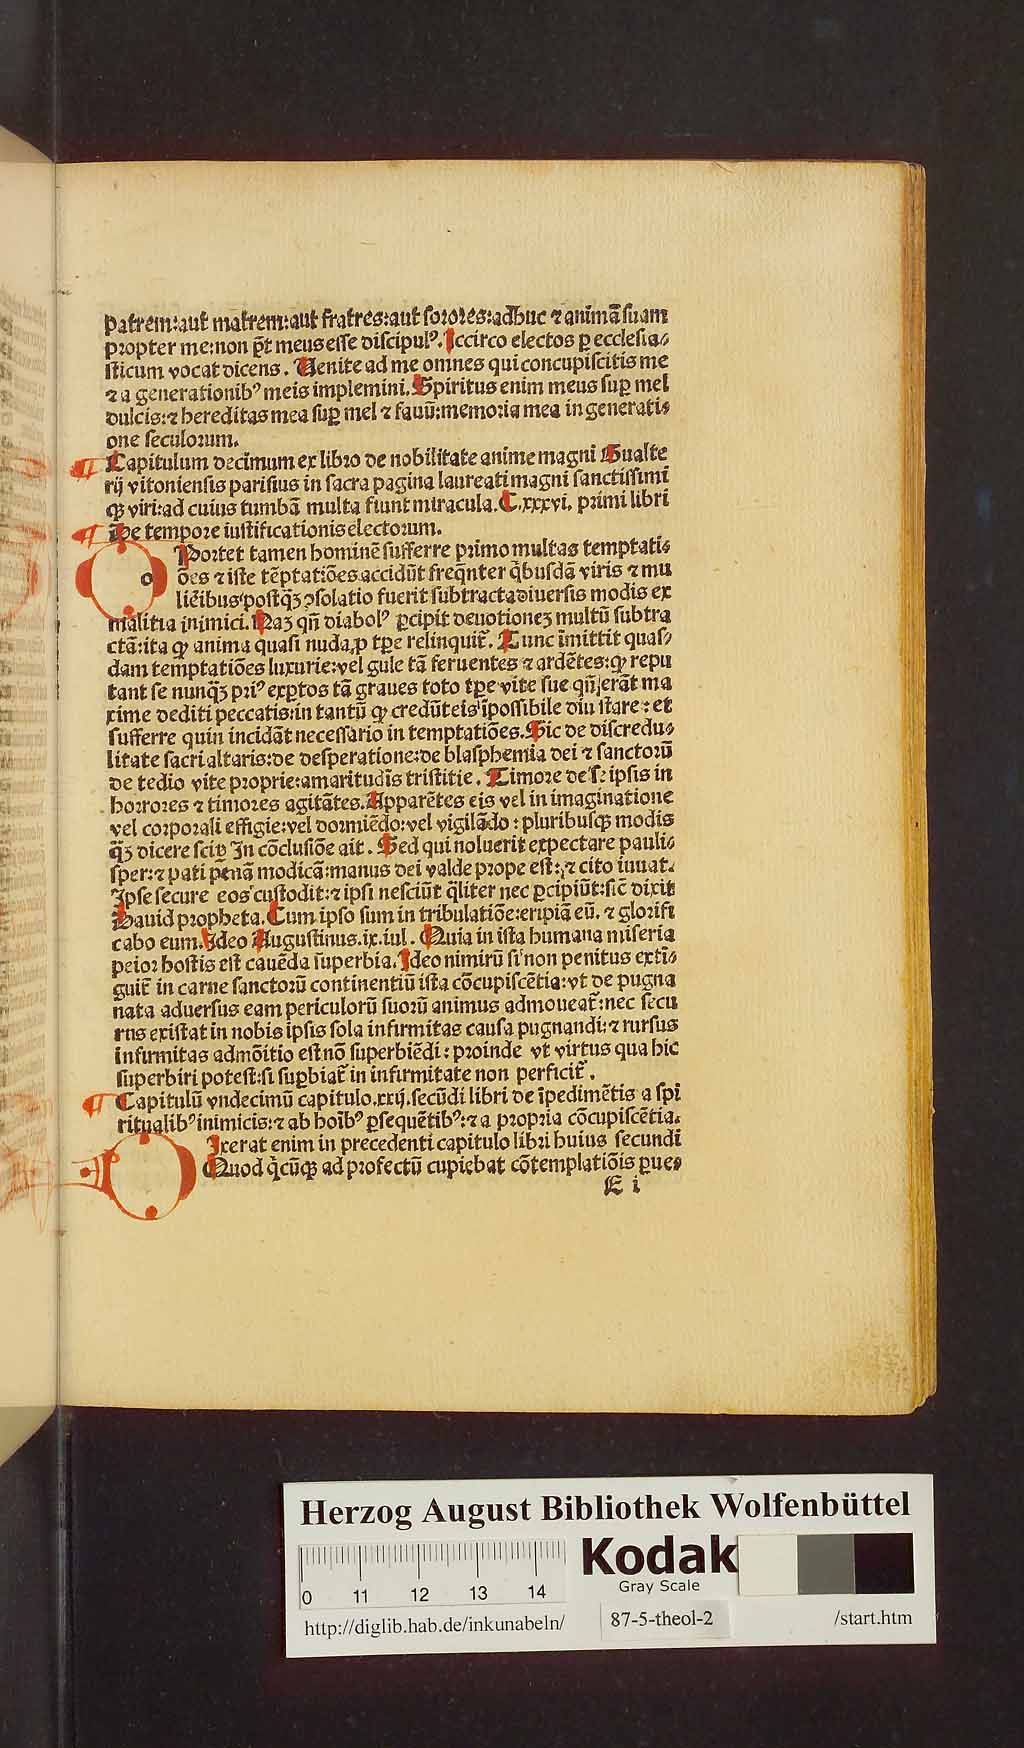 patrem:aut matrem:aut fratres:aut sorores:adhuc ⁊ animā suam
propter me:non p̄t meus esse discipulꝰ. Iccirco electos ꝑ ecclesia⸗
sticum vocat dicens. Uenite ad me omnes qui concupiscitis me
⁊ a generationibꝰ meis implemini. Spiritus enim meus suꝑ mel
dulcis:⁊ hereditas mea suꝑ mel ⁊ fauū:memoria mea in generati⸗
one seculorum.
¶ Capitulum decimum ex libro de nobilitate anime magni Gualte
rij vitoniensis parisius in sacra pagina laureati magni sanctissimi
qꝫ viri:ad cuius tumbā multa fiunt miracula. C.xxxvi. primi libri
¶ De tempore iustificationis electorum.
o Portet tamen hominē sufferre primo multas temptati⸗
ōes ⁊ iste tēptatiōes accidūt freq̄nter q̇busdā viris ⁊ mu
liēibus postq̄ꝫ ꝯsolatio fuerit subtracta diuersis modis ex
malitia inimici. Naꝫ qn̄ diabolꝰ ꝑcipit deuotioneꝫ multū subtra
ctā:ita ꝙ anima quasi nuda ꝓ tꝑe relinquit᷑. Tunc īmittit quas⸗
dam temptatiōes luxurie:vel gule tā feruentes ⁊ ardētes:ꝙ repu
tant se nunq̄ꝫ priꝰ exꝑtos tā graues toto tꝑe vite sue qn̄ erāt ma
xime dediti peccatis:in tantū ꝙ credūt eis īpossibile diu stare: et
sufferre quin incidāt necessario in temptatiōes. Sic de discredu⸗
litate sacri altaris:de desperatione:de blasphemia dei ⁊ sanctorū
de tedio vite proprie:amaritudīs tristitie. Timore de se ipsis in
horrores ⁊ timores agitātes. Apparētes eis vel in imaginatione
vel corporali effigie:vel dormiēdo:vel vigilādo: pluribusqꝫ modis
q̄ꝫ dicere scio In cōclusiōe ait. Sed qui noluerit expectare pauli⸗
sper:⁊ pati penā modicā:manus dei valde prope est:⁊ cito iuuat.
Ipse secure eos custodit:⁊ ipsi nesciūt q̄liter nec ꝑcipiūt:sic̄ dixit
Dauid propheta. Cum ipso sum in tribulatiōe:eripiā eū. ⁊ glorifi
cabo eum. Ideo Augustinus.ix.iul. Quia in ista humana miseria
peior hostis est cauēda suꝑbia. Ideo nimirū si non penitus exti⸗
guit᷑ in carne sanctorū continentiū ista cōcupiscētia:vt de pugna
nata aduersus eam periculorū suorū animus admoueat᷑:nec secu
rus existat in nobis ipsis sola infirmitas causa pugnandi:⁊ rursus
infirmitas admōitio est nō superbiēdi: proinde vt virtus qua hic
superbiri potest:si suꝑbiat᷑ in infirmitate non perficit᷑.
¶ Capitulū vndecimū capitulo.xxij.secūdi libri de īpedimētis a spi
ritualibꝰ inimicis:⁊ ab hoībꝰ ꝑsequētibꝰ:⁊ a propria cōcupiscētia.
D Ixerat enim in precedenti capitulo libri huius secundi
Quod q̇cūqꝫ ad profectū cupiebat cōtemplatiōis ꝑue⸗
E i
Herzog August Bibliothek Wolfenbüttel
Kodak
Gray Scale
0 11 12 13 14
http://diglib.hab.de/inkunabeln/ 87-5-theol-2 /start.htm